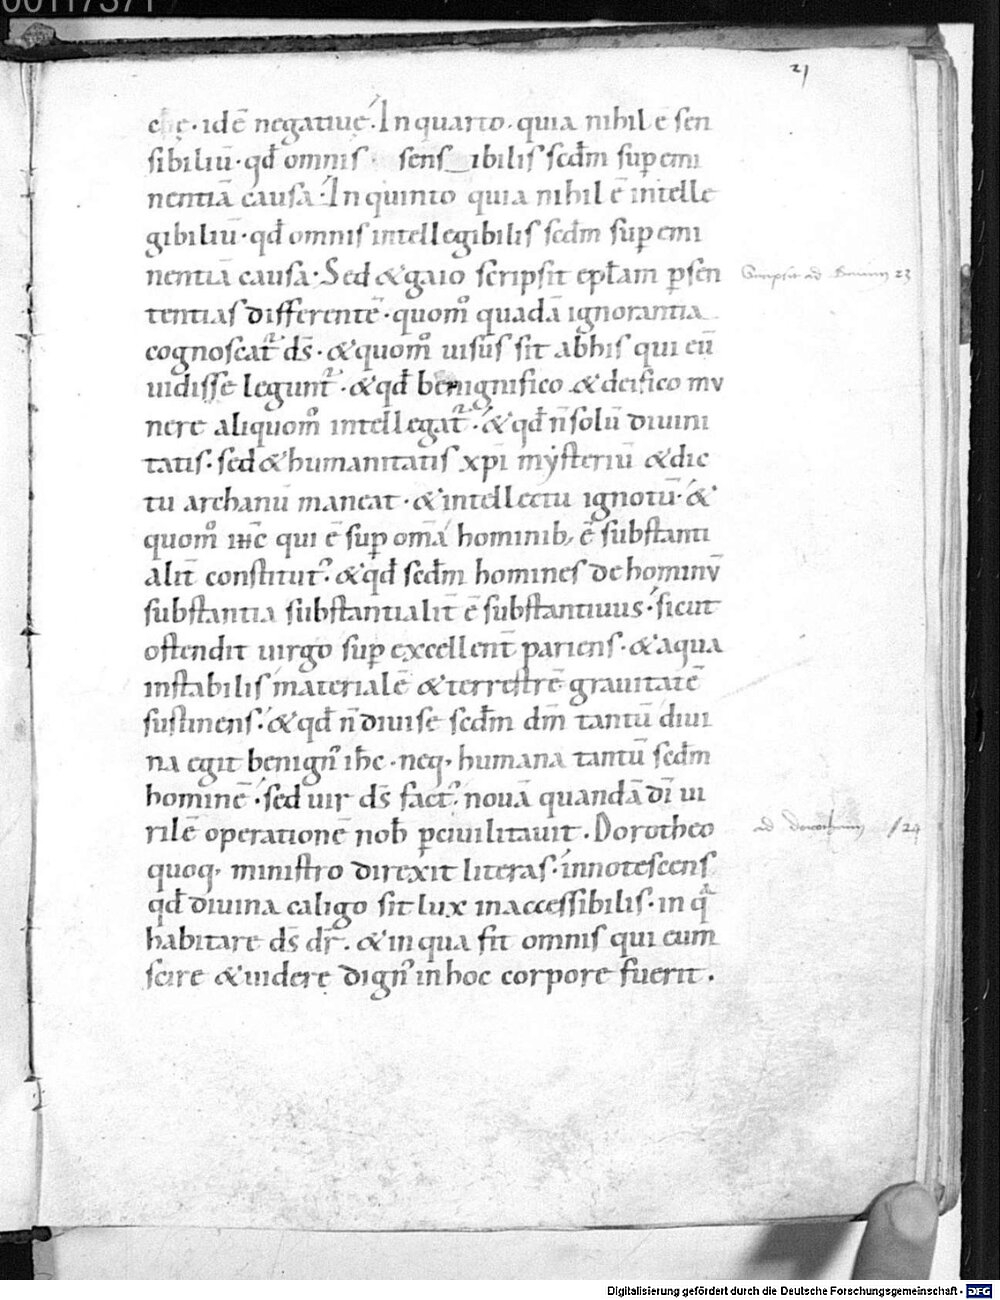 00117371
21
che · idē negatiuę · In quarto · quia nihil ē sen
sibiliū · qđ omnis sens ibilis scđm sup emi
nentiā causa · In quinto quia nihil ē intelle
gibiliū · qđ omnis intellegibilis scđm sup emi
nentiā causa · Sed & gaio scripsit epłam p sen
Scripsit ad 23
tentias differentē · quom̊ quadā ignorantia
cognoscat᷑ ds̄ · & quom̊ uisus sit abhis qui eū
uidisse legunt᷑ · & qđ benignifico & deifico mu
nere aliquom̊ intellegat᷑ · & qđ n̄ solū diuini
tatis · sed & humanitatis xp̄i mẏsteriū & dic
tū archanū maneat · & intellectu ignotū · &
quom̊ ih̄c qui ē sup om̄a hominib; ē substanti
alit̄ constitut᷒ · & qđ scđm homines de hominū
substantia substantialit̄ ē substantiuus · sicut
ostendit uirgo sup excellent̄ pariens · & aqua
instabilis materialē & terrestrē grauitatē
sustinens · & qđ n̄ diuise scđm dm̄ tantū diui
na egit benign᷒ ih̄c · neq; humana tantū scđm
hominē · sed uir ds̄ fact᷒ nouā quandā dī ui
rilē operationē nob̄ pciuilitauit · Dorotheo
ad dorotheum /24
quoq; ministro direxit literas · innotescens
qđ diuina caligo sit lux inaccessibilis · in qͣ
habitare ds̄ dr̄ · & in qua fit omnis qui eum
scire & uidere dign᷒ in hoc corpore fuerit ·
Digitalisierung gefördert durch die Deutsche Forschungsgemeinschaft - DFG